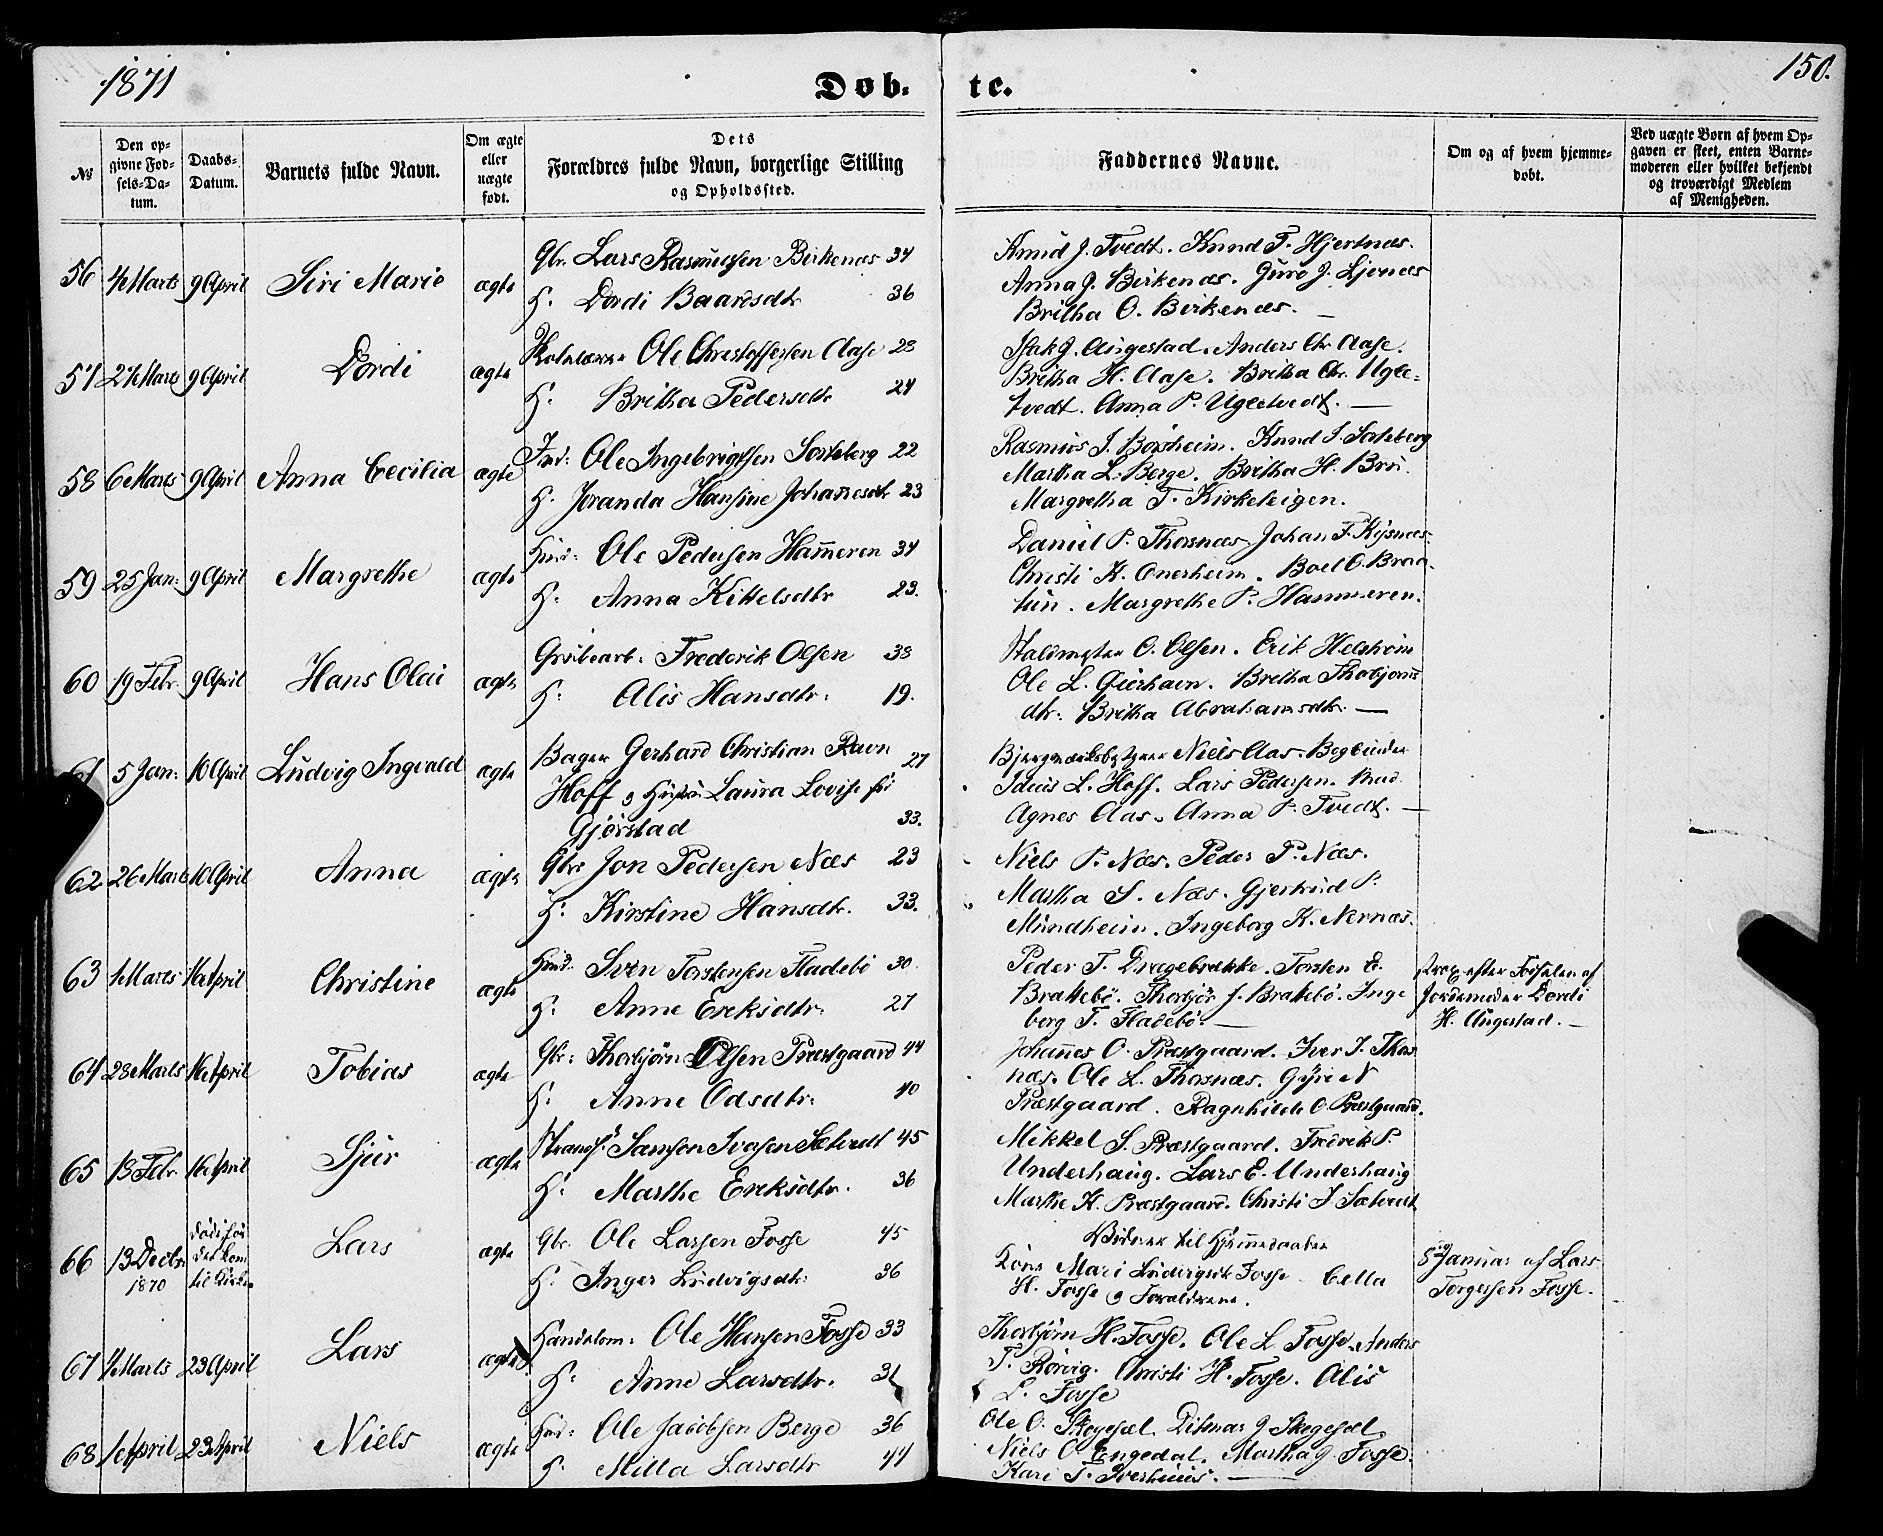 1871
Døb-
te.
150.
№
Den op-
givne Fød-
sels-Da-
tum.
Daabs-
Datum.
Barnets fulde Navn.
Om ægte
eller
uægte
født.
Dets
Forældres fulde Navn, borgerlige Stilling
og Opholdssted.
Faddernes Navne.
Om og af hvem hjemme-
døbt.
Ved uægte Børn af hvem Op-
gaven er skeet, enten Barne-
moderen eller hvilket bekjendt
og troværdigt Medlem
af Menigheden.
56 4 Marts 9 April Siri Marie ægte
Gbr. Lars Rasmussen Birkenæs 34
H. Dordi Baardsdtr 36
Knud J. Tvedt. Knud T. Hjertnæs.
Anna J. Birkenæs. Guro J. Ljonæs
Britha O. Birkenæs. —
57 27 Marts 9 April Dordi ægte
Ole Christoffersen Aase 23
H. Britha Pedersdtr 24
Isak J. Augestad. Anders Chr. Aase.
Britha H. Aase. Britha Chr. Ugle-
tvedt. Anna P. Ugletvedt. —
58 6 Marts 9 April Anna Cecilia ægte
Ind: Ole Ingebrigtsen Sorteberg 22
H. Joranda Hansine Johannesdtr 23
Rasmus J. Børsheim. Knud I. Sorteberg
Martha L. Berge. Britha H. Bru.
Margretha T. Kirketeigen.
59 25 Jan: 9 April Margrethe ægte
Hmd: Ole Pedersen Hammeren 34
H: Anna Kittelsdtr 23.
Daniel P. Thorsnæs. Johan F. Kysnæs.
Christi K. Onerheim. Boel O. Braa-
tun. Margrethe P. Hammeren.
60 19 Febr. 9 April Hans Olai ægte
Grubearb: Frederik Olsen 33
H: Alis Hansdtr. 19.
Staldmester O. Olsen. Erik Helstrøm
Ole L. Gierhavn. Britha Thorbjørns
dtr: Britha Abrahamsdtr. —
61 5 Jan: 10 April Ludvig Ingvald ægte
Bager Gerhard Christian Ravn 27
Hoff og Hustru Laura Lovise fød
Gjørstad 33.
Niels Aas. Bogbinder
L. Hoff. Lars Pedersen.
Agnes Aas. Anna P. Tvedt. —
62 26 Marts 10 April Anna ægte
Gbr. Jon Pedersen Næs 23
H: Kirstine Hansdtr. 33.
Niels P. Næs. Peder P. Næs.
Martha S. Næs. Gjertrud P.
Mundheim. Ingeborg K. Nernæs.
63 1 Marts 16 April Christine ægte
Hmd. Sven Torstensen Fladebø 30.
H. Anne Eriksdtr. 27
Peder T. Drægebrække. Torsten E.
Brattebø. Thorbjør J. Brattebø. Inge
borg T. Fladebø. —
efter Fødselen af
Jordemoder Dordi
H. Augestad. —
64 28 Marts 16 April Tobias ægte
Gbr: Thorbjørn Olsen Præstgaard 44
H: Anne Odsdtr. 40
Johannes O. Præstgaard. Iver J. Thors
næs. Ole L. Thorsnæs. Gyri N
Præstgaard. Ragnhilde O. Præstgaard.
65 13 Febr. 16 April Sjur ægte
Strands: Samson Ivarsen Sætvedt 45
H: Marthe Eriksdtr. 36
Mikkel S. Præstgaard. Fredrik P.
Underhaug. Lars E. Underhaug
Marthe K. Præstgaard. Christi I Sætvedt
66 13 Decbr. 1870
døde før
det kom
til Kirken
Lars ægte
Gbr. Ole Larsen Fosse 45
H: Inger Ludvigsdtr: 36
Vidner til Hjemmedaaben
Kone Mari Ludvigsdtr Fosse. Cella
H. Fosse og Forældrene.
8 Januar af Lars
Torgersen Fosse.
67 4 Marts 23 April Lars ægte
Handelsm: Ole Hansen Fosse 33
H. Anne Larsdtr. 31
Thorbjørn H. Fosse. Ole L. Fosse. Anders
T. Rørvig. Christi H. Fosse. Alis
L. Fosse
68 1 April 23 April Niels ægte
Hmd: Ole Jacobsen Berge 36
H. Milla Larsdtr 44
Ole O. Skogesæl. Ditmar J. Skogesæl.
Niels O. Engedal. Martha J. Fosse.
Kari T. Iverhuus. —